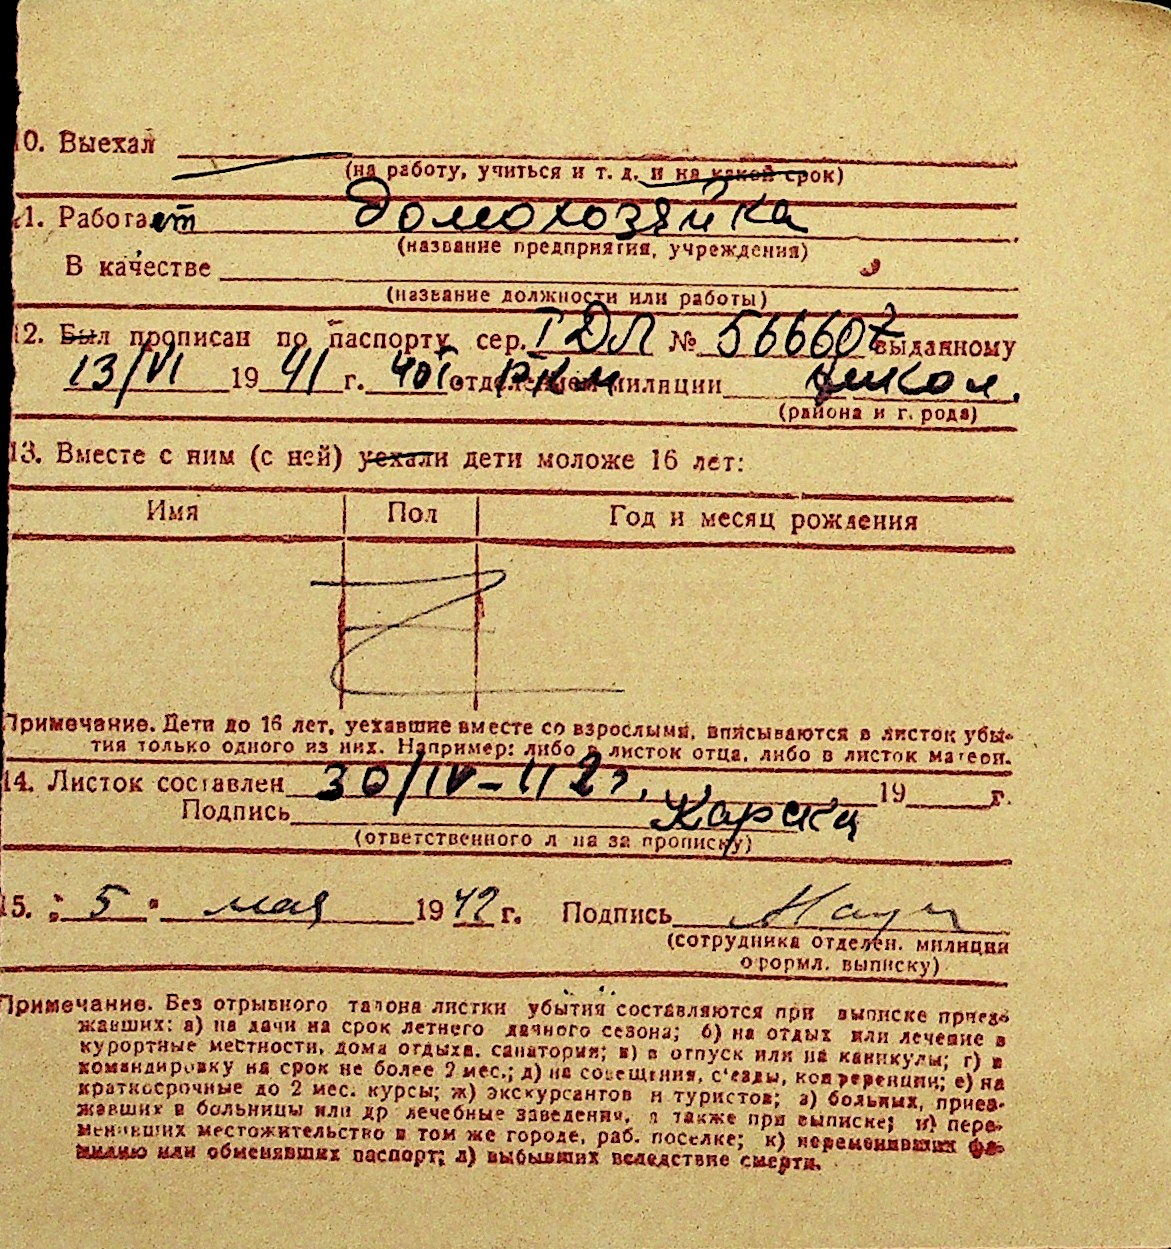 10. Выехал
(на работу, учиться и т. д. и на какой срок)
11. Работает домохозяйка
(название предприятия, учреждения)
В качестве
(название должности или работы)
12. Был прописан по паспорту сер. ІДЛ № 566607 выданному
13/VI 1941 г. 40 г. отделением РКМ милиции
(района и г. рода)
13. Вместе с ним (с ней) уехали дети моложе 16 лет:
Имя Пол Год и месяц рождения
Примечание. Дети до 16 лет, уехавшие вместе со взрослыми, вписываются в листок убы-
тия только одного из них. Например: либо в листок отца, либо в листок матери.
14. Листок составлен 30/IV-42г. 19 г.
Подпись
(ответственного л на за прописку)
15. " 5 " мая 1942 г. Подпись
(сотрудника отделен. милиции
оформл. выписку)
Примечание. Без отрывного талона листки убытия составляются при выписке приез-
жавших: а) на дачи на срок летнего дачного сезона; б) на отдых или лечение в
курортные местности, дома отдыха, санатории; в) в отпуск или на каникулы; г) в
командировку на срок не более 2 мес.; д) на совещения, с'езды, конференции; е) на
краткосрочные до 2 мес. курсы; ж) экскурсантов и туристов; з) больных, приез-
жавших в больницы или др лечебные заведения, а также при выписке; и) пере-
менивших местожительство в том же городе, раб. поселке; к) переменивших фа-
милию или обменявших паспорт; л) выбывших вследствие смерти.